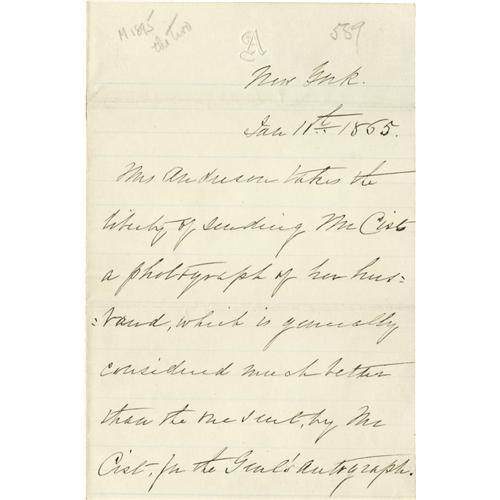 M 1895
the Two
589
New York.
Jan 11th 1865.
Mrs Anderson takes the
liberty of sending Mr Cist
a photograph of her hus=
=band, which is generally
considered much better
than the one sent, by Mr
Cist, for the Genl's Autograph.